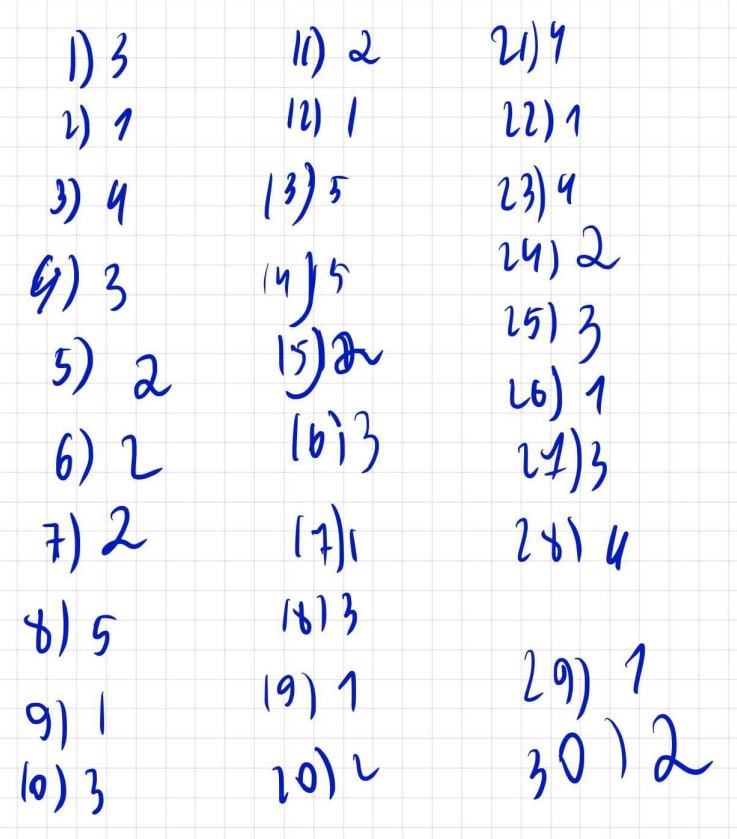 1) 3
2) 1
3) 4
4) 3
5) 2
6) 2
7) 2
8) 5
9) 1
10) 3
11) 2
12) 1
13) 5
14) 5
15) 2
16) 3
17) 1
18) 3
19) 1
20) 2
21) 4
22) 1
23) 4
24) 2
25) 3
26) 1
27) 3
28) 4
29) 1
30) 2